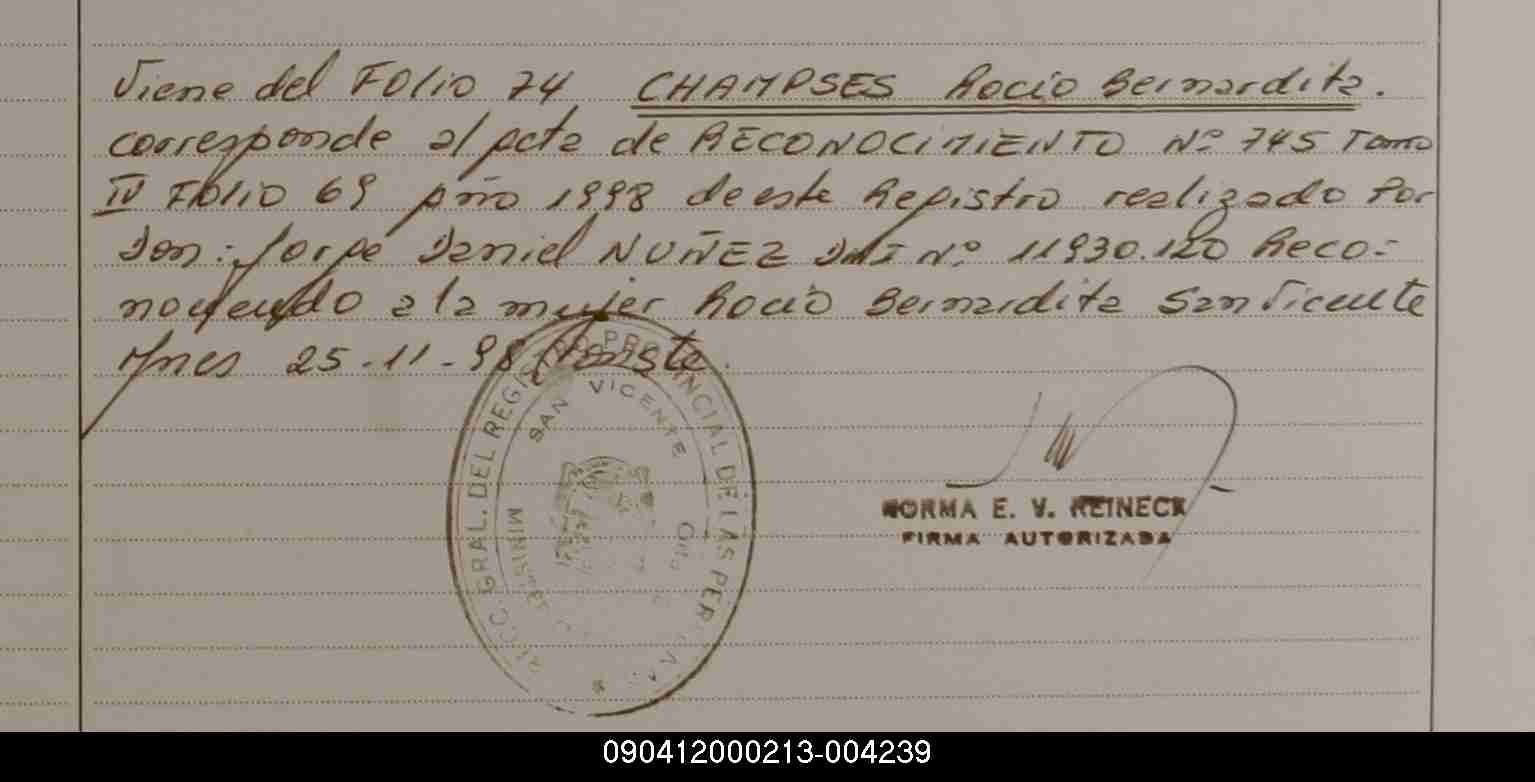 Viene del Folio 74 CHAMPSES Rocio Bernardita.
corresponde al acta de RECONOCIMIENTO Nº 745 Tomo
IV Folio 69 año 1998 de este Registro realizado Por
Don: Jorge Daniel NUÑEZ DNI Nº 11930.120 Reco=
nociendo a la mujer Rocio Bernardita San Vicente
Mnes 25-11-98 Conste.
DIRECC. GRAL. DEL REGISTRO PROVINCIAL DE LAS PERSONAS
SAN VICENTE
NORMA E. V. REINECK
FIRMA AUTORIZADA
090412000213-004239